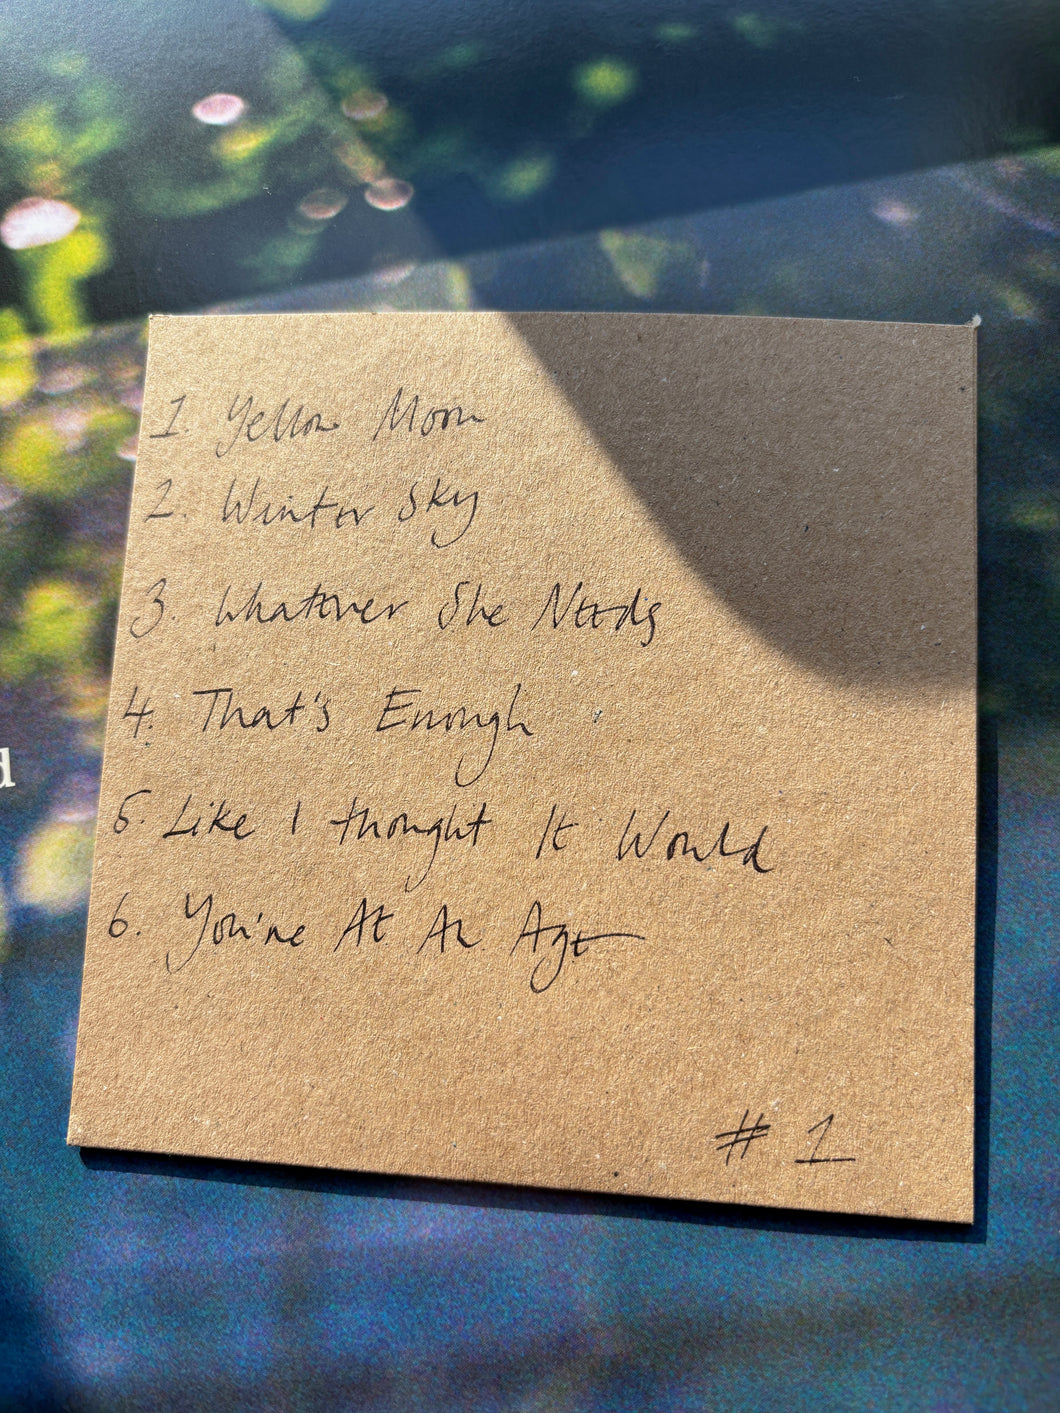 1. Yellow Moon
2. Winter Sky
3. Whatever She Needs
4. That's Enough
5. Like I thought It Would
6. You're At An Age
# 1
d